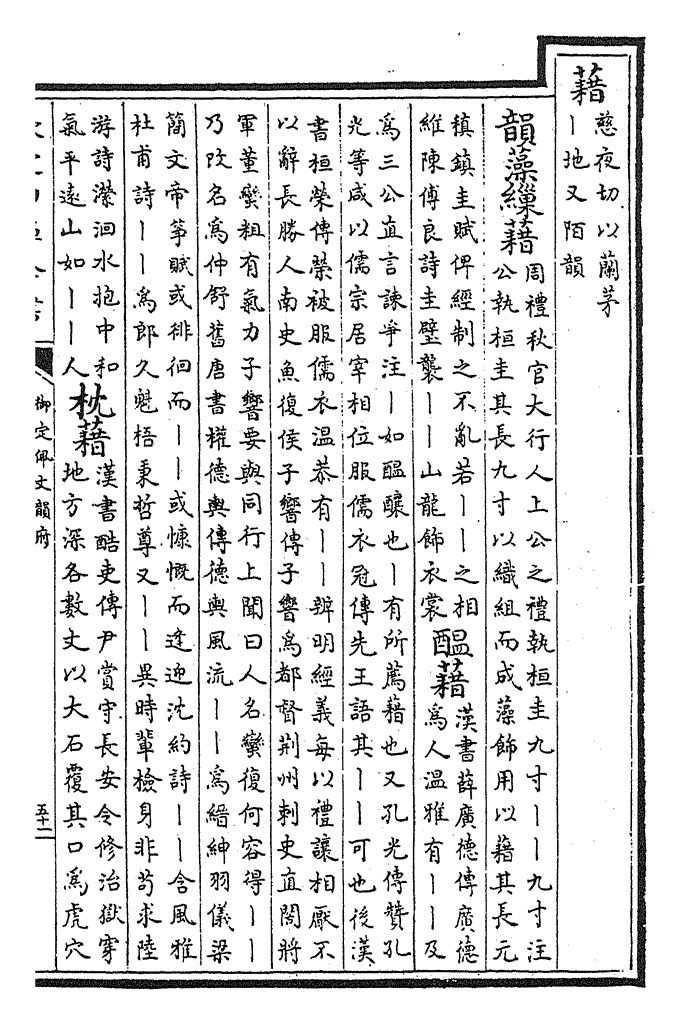 藉
慈夜切以蘭茅
丨地又陌韻
韻藻繅藉
周禮秋官大行人上公之禮執桓圭九寸丨丨九寸注
公執桓圭其長九寸以織組而成藻飾用以藉其長元
稹鎮圭賦俾經制之不亂若丨丨之相
維陳傅良詩圭璧襲丨丨山龍飾衣裳
醖藉
漢書薛廣德傳廣德
爲人温雅有丨丨及
爲三公直言諫爭注丨如醖釀也丨有所薦藉也又孔光傳贊孔
光等咸以儒宗居宰相位服儒衣冠傳先王語其丨丨可也後漢
書桓榮傳榮被服儒衣温恭有丨丨辨明經義每以禮讓相厭不
以辭長勝人南史魚復侯子響傳子響爲都督荆州刺史直閤將
軍董蠻粗有氣力子響要與同行上聞曰人名蠻復何容得丨丨
乃改名爲仲舒舊唐書權德輿傳德輿風流丨丨爲縉紳羽儀梁
簡文帝筝賦或徘徊而丨丨或慷慨而逢迎沈約詩丨丨含風雅
杜甫詩丨丨爲郎久魁梧秉哲尊又丨丨異時輩檢身非苟求陸
游詩瀠洄水抱中和
氣平遠山如丨丨人
枕藉
漢書酷吏傳尹賞守長安令修治獄穿
地方深各數丈以大石覆其口爲虎穴
御定佩文韻府
五十二